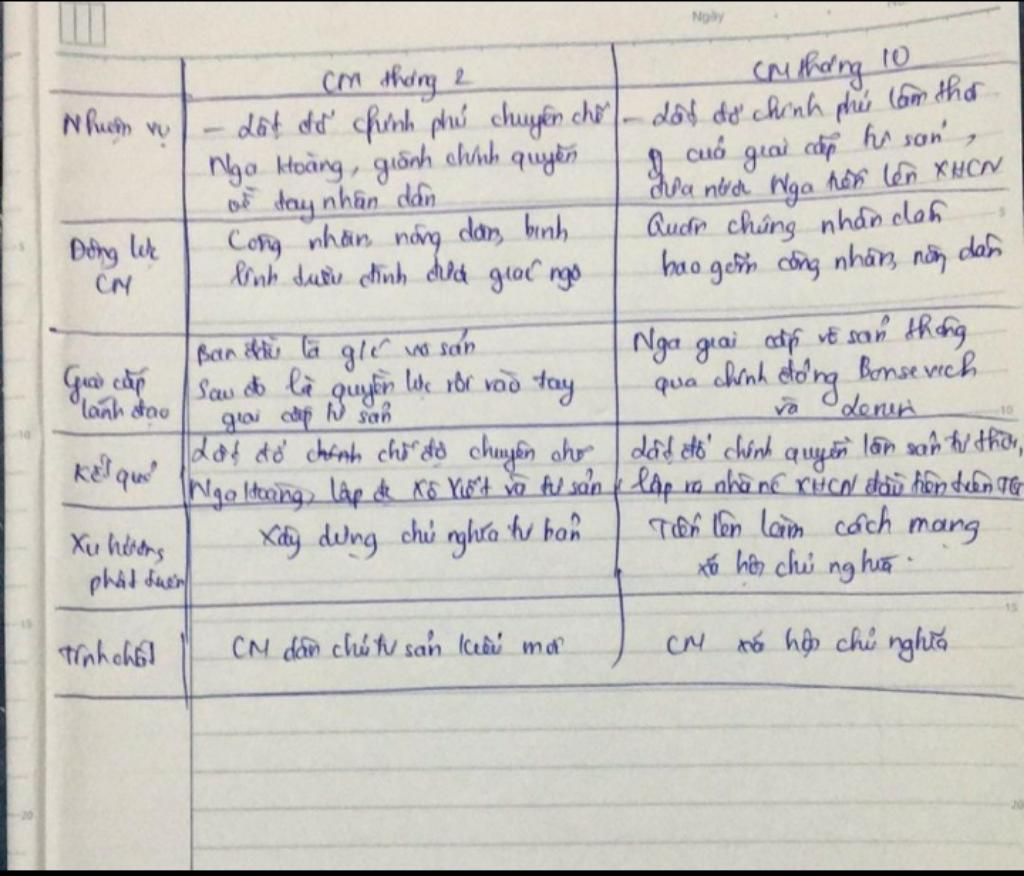 Ngày
CM tháng 2
CM tháng 10
Nhiệm vụ
- Lật đổ chính phủ chuyên chế
Nga Hoàng, giành chính quyền
về tay nhân dân
- Lật đổ chính phủ lâm thời
của giai cấp tư sản,
đưa nước Nga tiến lên XHCN
Động lực
CM
Công nhân, nông dân, binh
lính được giác ngộ
Quần chúng nhân dân
bao gồm công nhân, nông dân
Giai cấp
lãnh đạo
Ban đầu là g/c vô sản
Sau đó là quyền lực rơi vào tay
giai cấp tư sản
Nga giai cấp vô sản thông
qua chính đảng Bonsevich
và Lenin
Kết quả
Lật đổ chính chế độ chuyên chế
Nga Hoàng, lập Xô Viết và tư sản
Lật đổ chính quyền tư
lập ra nhà nc XHCN đầu tiên trên TG
Xu hướng
phát triển
Xây dựng chủ nghĩa tư bản
Tiến lên làm cách mạng
xã hội chủ nghĩa.
Tính chất
CM dân chủ tư sản kiểu mới
CM xã hội chủ nghĩa
5
10
15
20
5
10
15
20